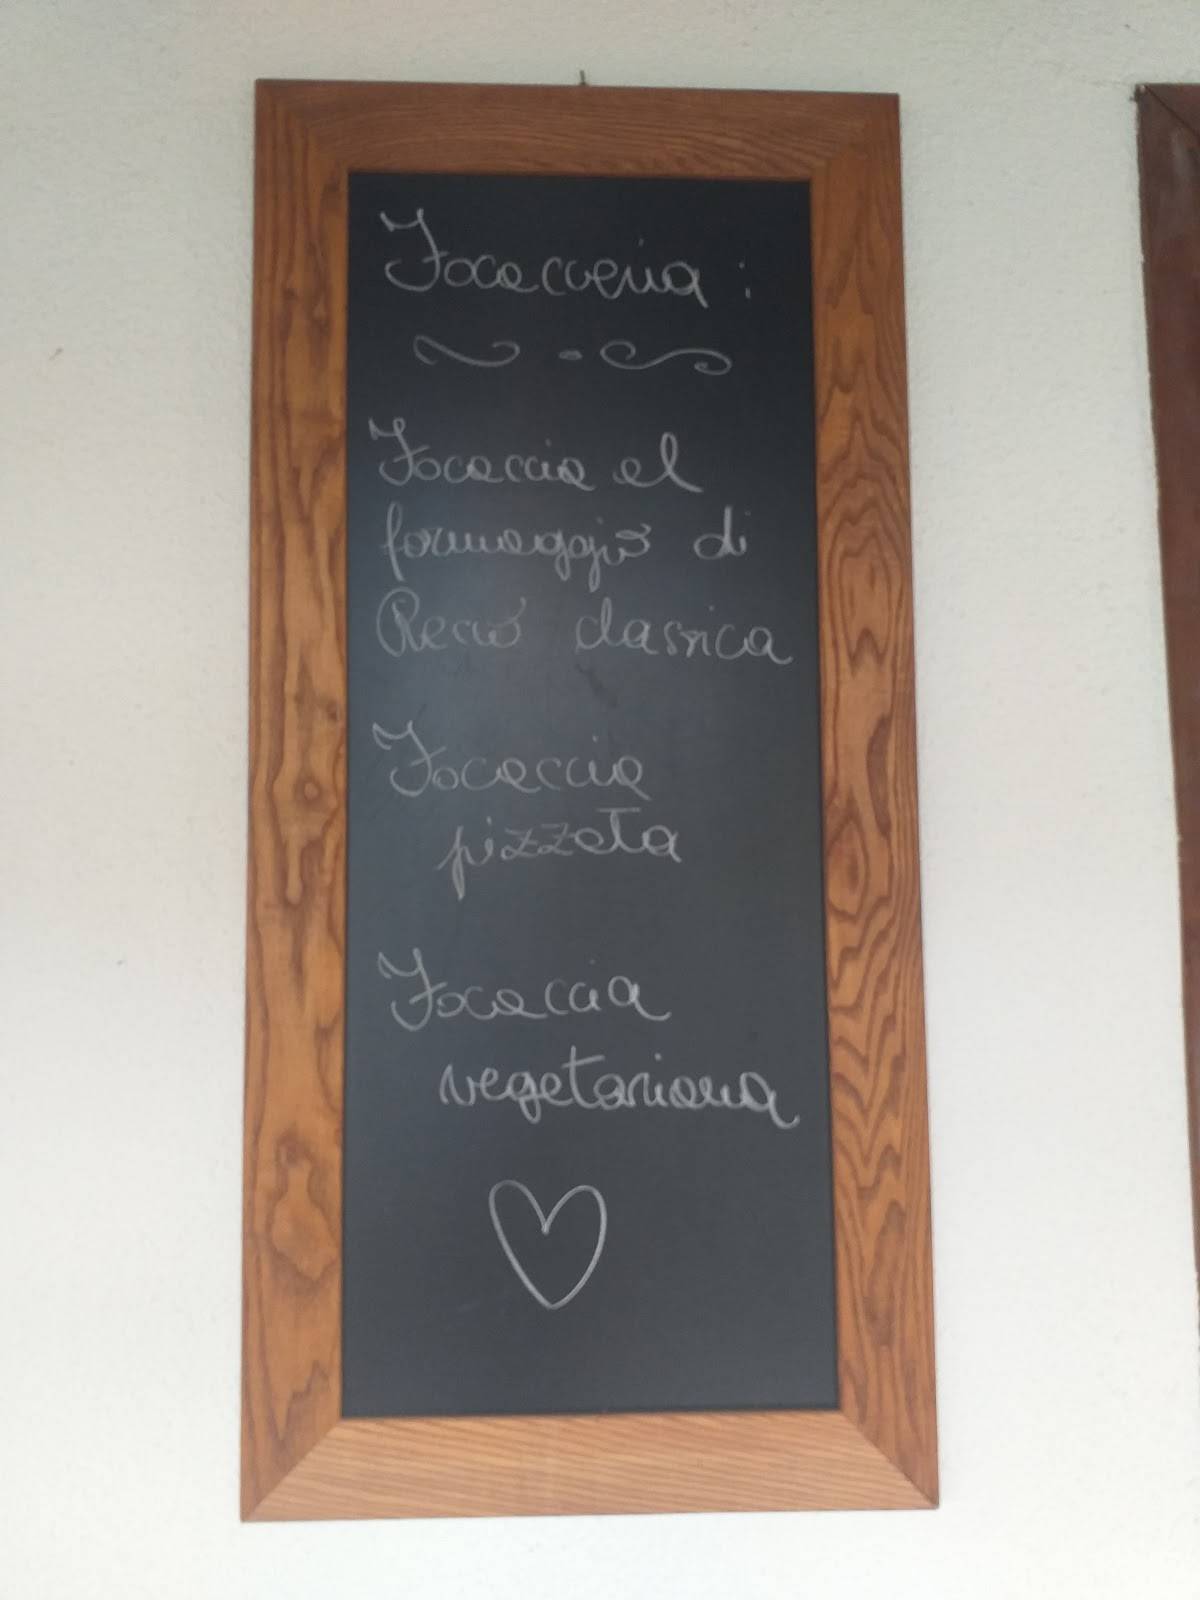 Focacceria :
Focaccia al
formaggio di
Recco classica
Focaccia
pizzata
Focaccia
vegetariana